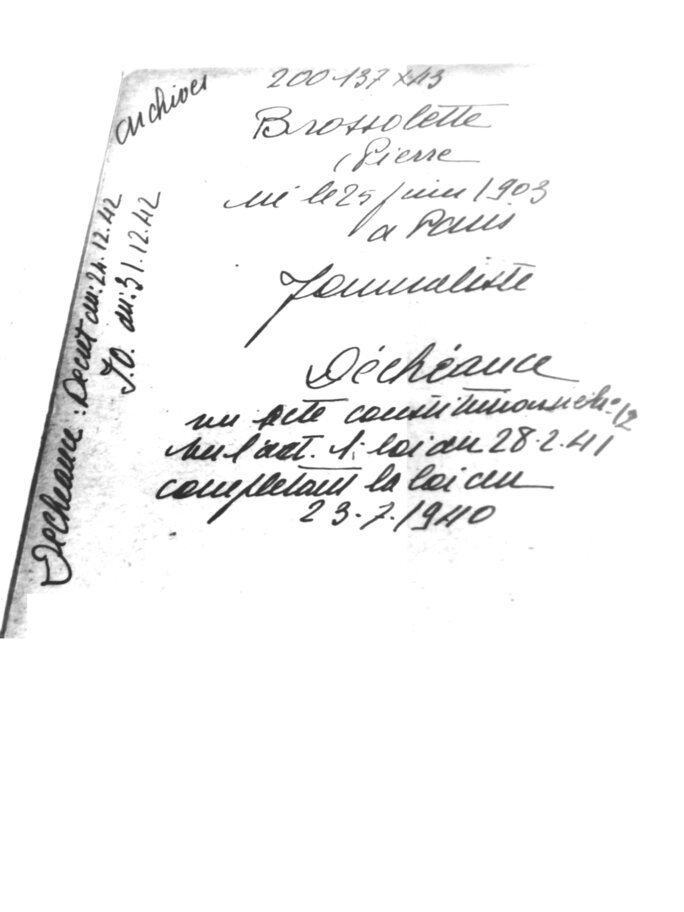 Archives
200 137 X 43
Brossolette
Pierre
né le 25 juin 1903
a Paris
Journaliste
Déchéance
vu acte constitutionnel n° 12
vu l'art. 1; loi du 28.2.41
completant la loi du
23.7.1940
Déchéance : Decret du: 24.12.42
J.O. du: 31.12.42